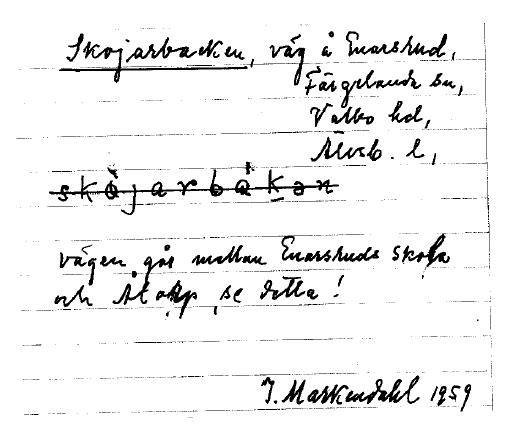 Skojarbacken, väg å Enarsrud,
Färgelanda sn,
Valbo hd,
Älvsb. l,
skòjarbàkən
vägen går mellan Enarsruds skola
och , se detta!
J. Markendahl 1959